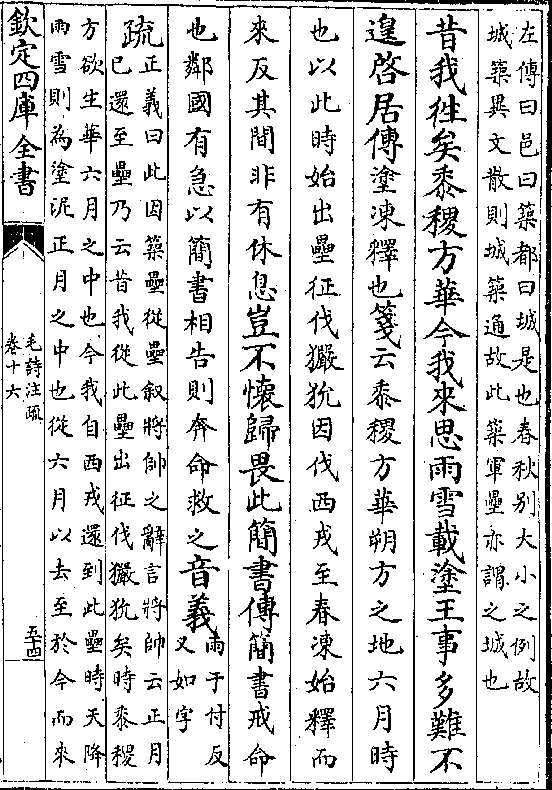 左傳曰邑曰築都曰城是也春秋别大小之例故
城築異文散則城築通故此築軍壘亦謂之城也
昔我徃矣黍稷方華今我來思雨雪載塗王事多難不
遑啓居傳塗凍釋也箋云黍稷方華朔方之地六月時
也以此時始出壘征伐玁狁因伐西戎至春凍始釋而
來反其間非有休息豈不懷歸畏此簡書傳簡書戒命
也鄰國有急以簡書相告則奔命救之音義雨于付反
又如字
疏正義曰此因築壘從壘叙將帥之辭言將帥云正月
已還至壘乃云昔我從此壘出征伐玁狁矣時黍稷
方欲生華六月之中也今我自西戎還到此壘時天降
雨雪則為塗泥正月之中也從六月以去至於今而來
欽定四庫全書
毛詩注疏
卷十六
五十四